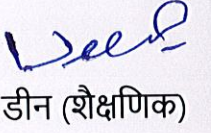 डीन (शैक्षणिक)